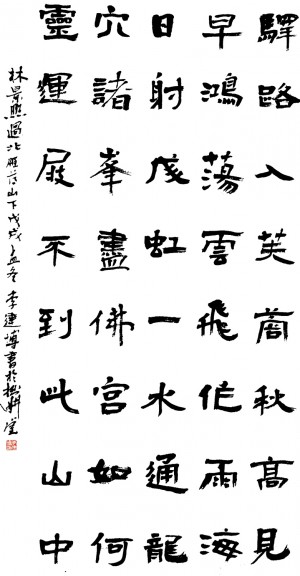 驛路入芙蓉秋高見
早鴻蕩雲飛作雨海
日射成虹一水通龍
穴諸峯盡佛宮如何
靈運屐不到此山中
林景熙過北雁蕩山下戊戌孟冬李連博書於堂